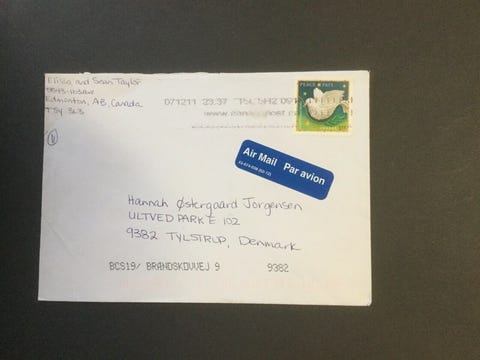 Elissa and Sean Taylor
Edmonton, AB, Canada
T5Y 3L3
071211 23:37 T5L 5H2
PEACE PAIX
Air Mail Par avion
Hannah Østergaard Jorgensen
ULTVED PARK E 102
9382 TYLSTRUP, Denmark
BCS19/ BRANDSKOVVEJ 9 9382